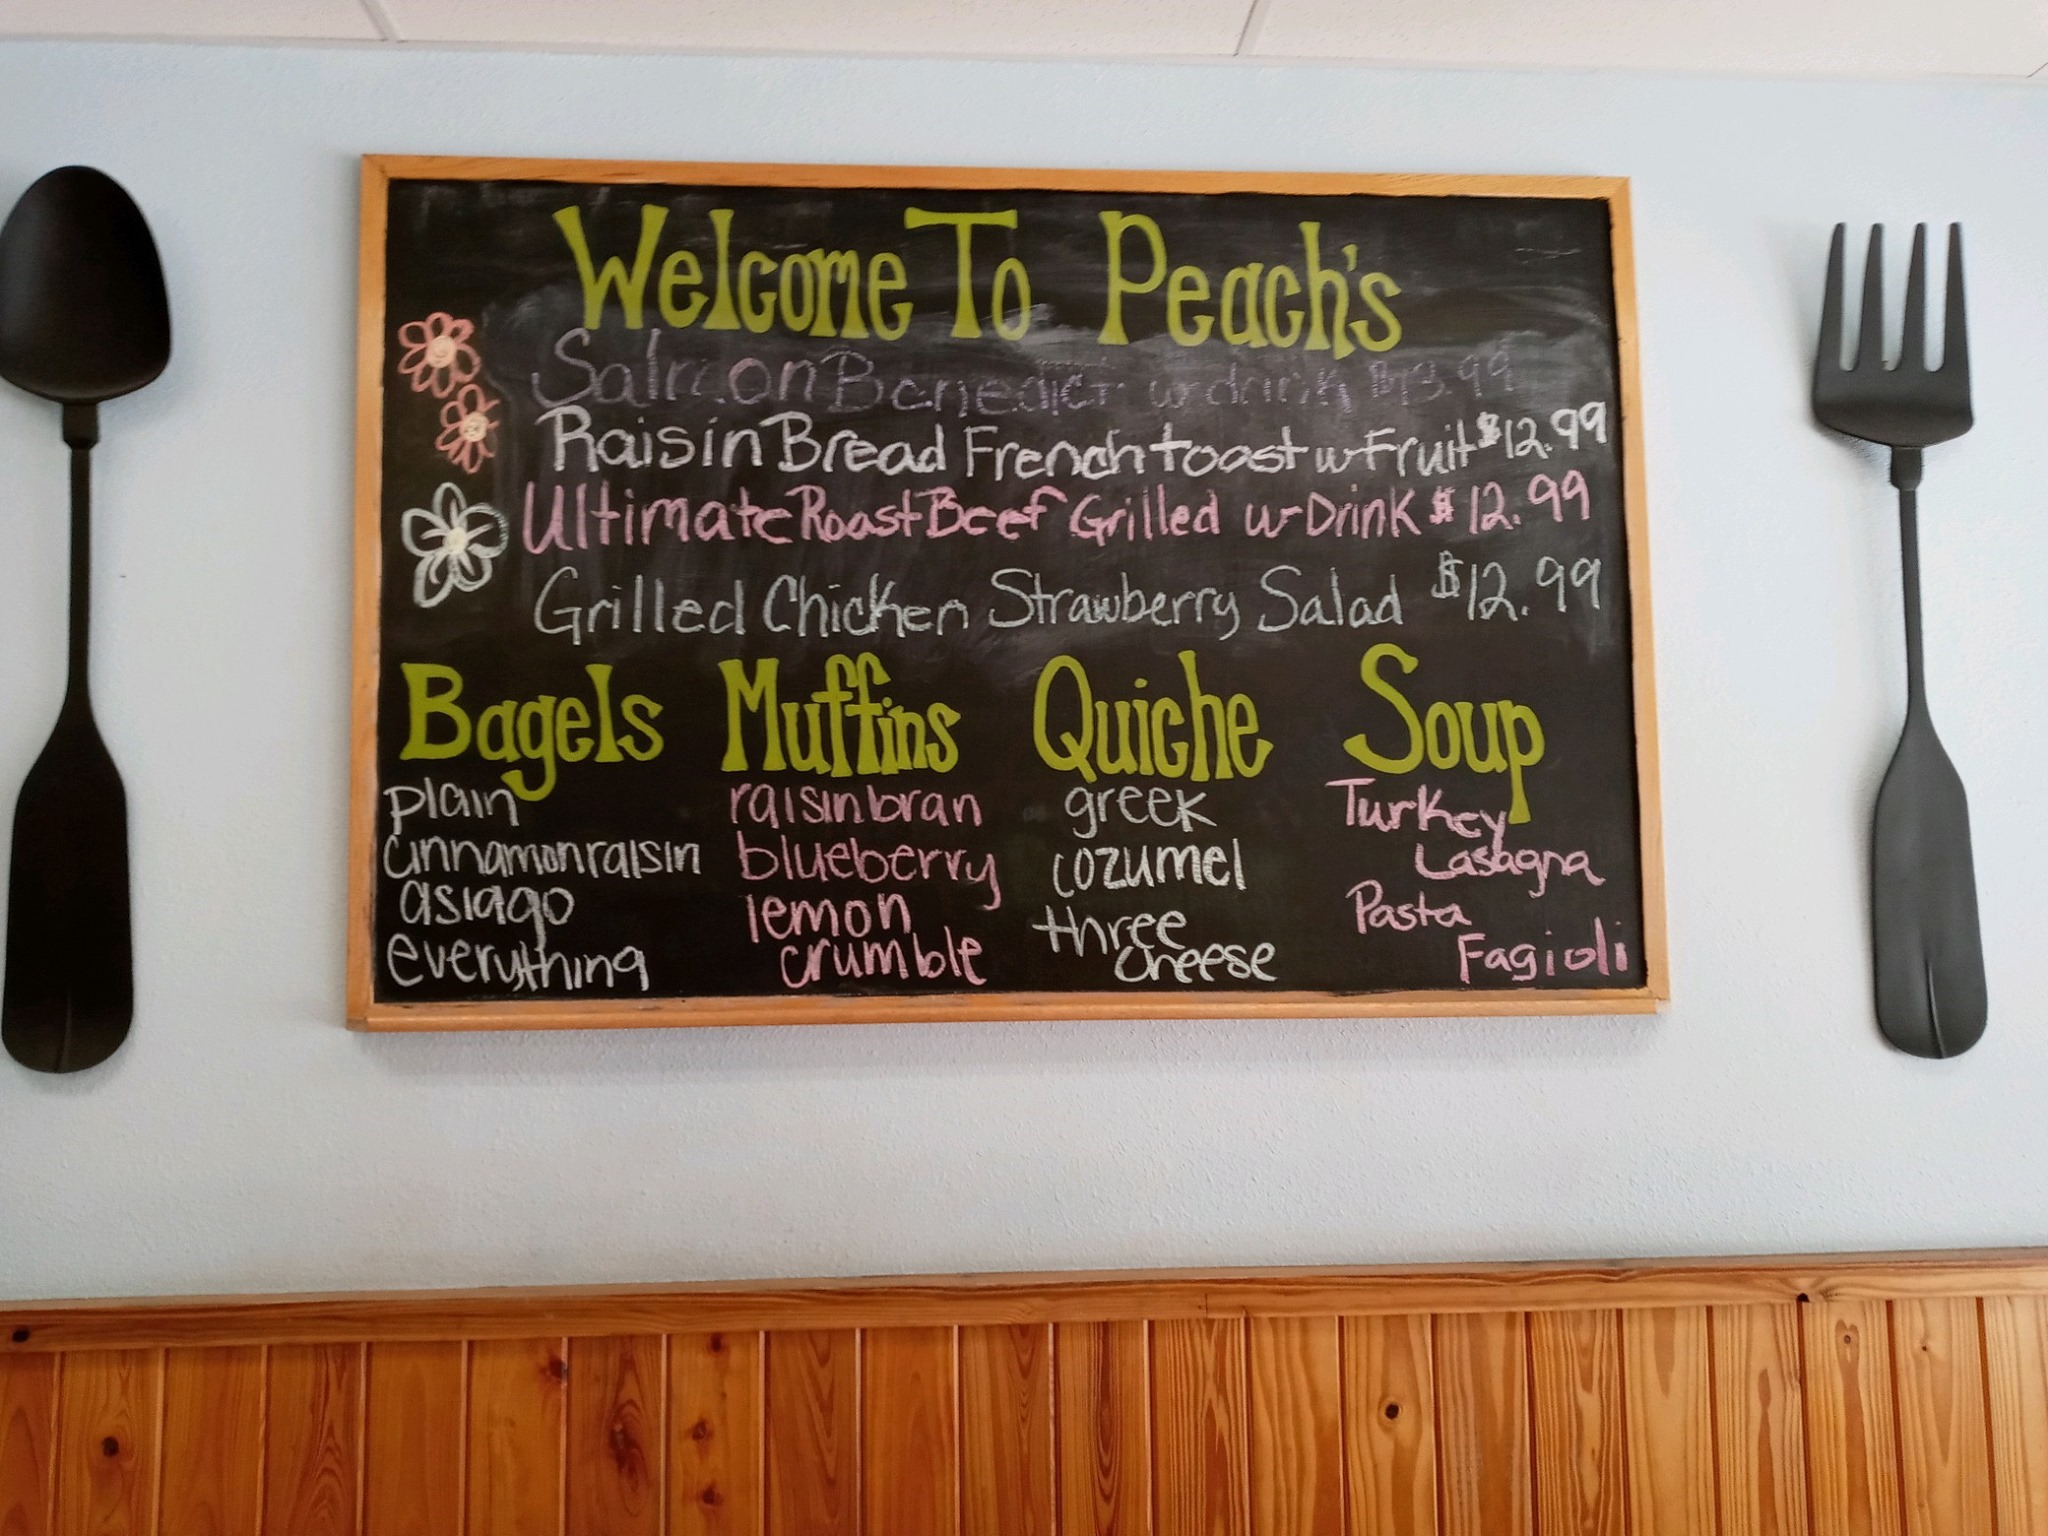 Welcome To Peach's
Salmon Benedict w drink $13.99
Raisin Bread French toast w Fruit $12.99
Ultimate Roast Beef Grilled w Drink $12.99
Grilled Chicken Strawberry Salad $12.99
Bagels
plain
cinnamon raisin
asiago
everything
Muffins
raisin bran
blueberry
lemon
crumble
Quiche
greek
cozumel
three
cheese
Soup
Turkey
Lasagna
Pasta
Fagioli